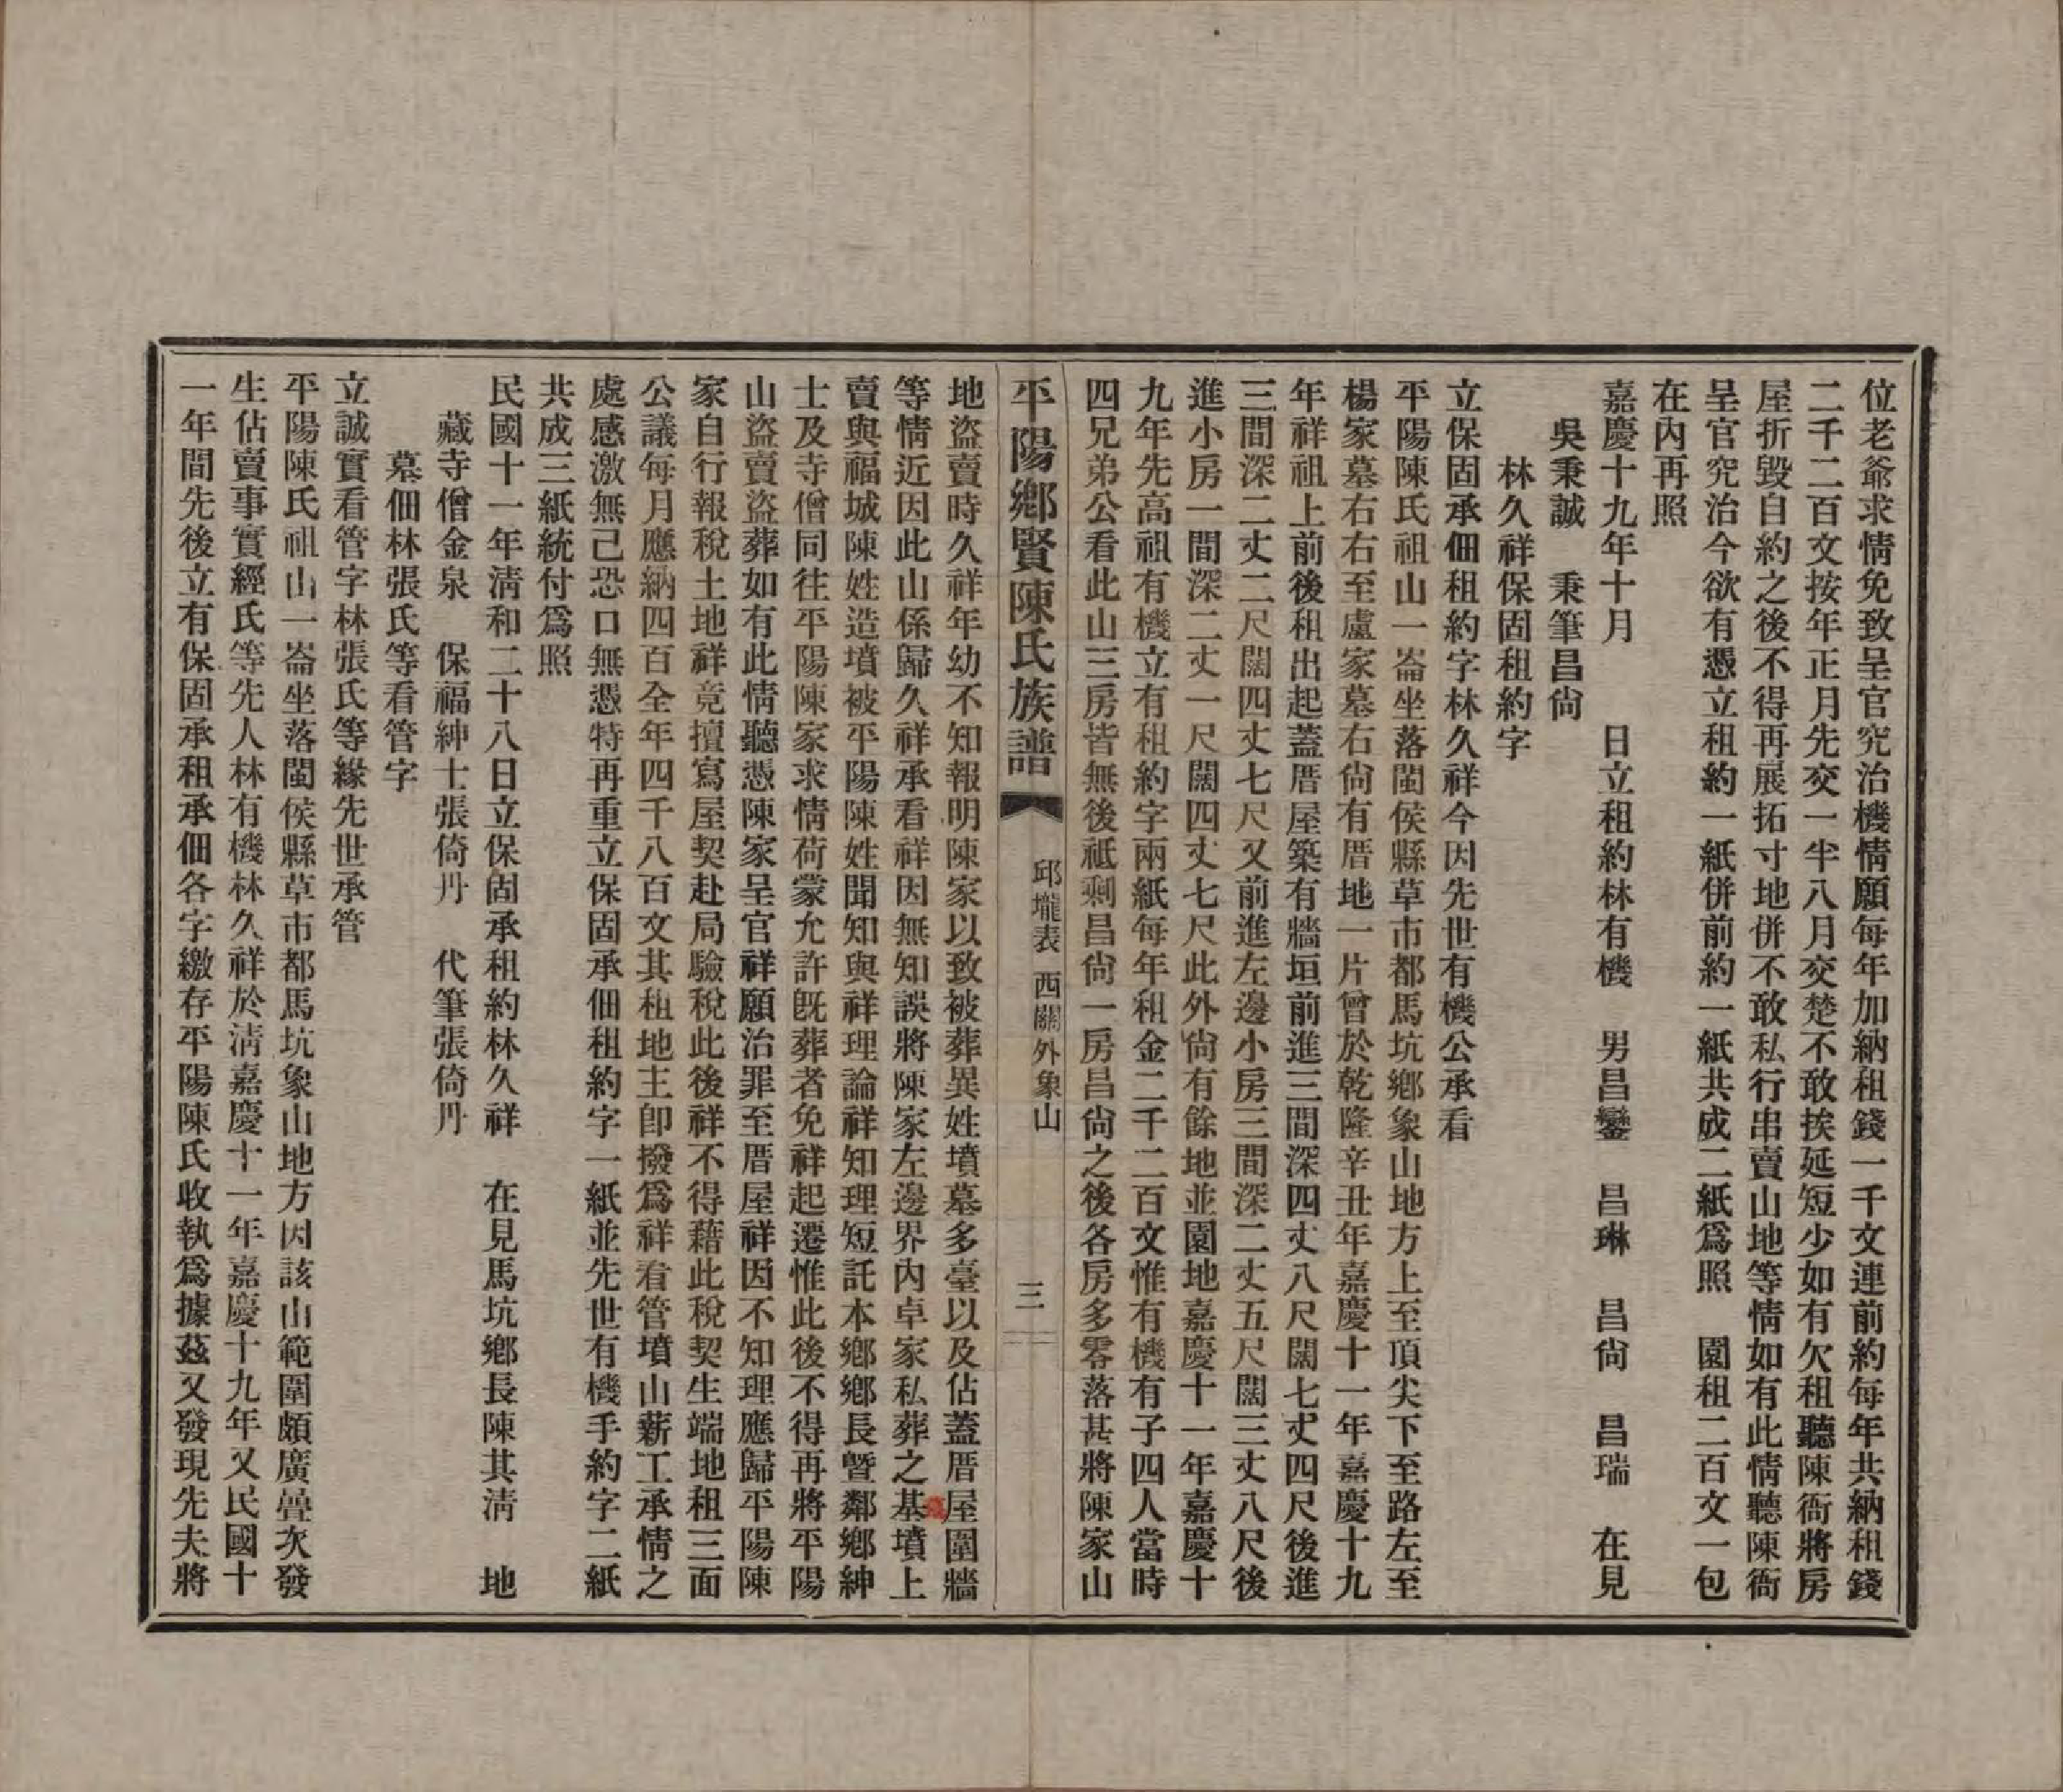 位老爺求情免致呈官究治機情願每年加納租錢一千文連前約每年共納租錢
二千二百文按年正月先交一半八月交楚不敢挨延短少如有欠租聽陳衙將房
屋折毀自約之後不得再展拓寸地併不敢私行串賣山地等情如有此情聽陳衙
呈官究治今欲有憑立租約一紙併前約一紙共成二紙爲照　園租二百文一包
在內再照
嘉慶十九年十月　　日立租約林有機　男昌鑾　昌琳　昌尙　昌瑞　在見
吳秉誠　秉筆昌尙
林久祥保固租約字
立保固承佃租約字林久祥今因先世有機公承看
平陽陳氏祖山一崙坐落閩侯縣草市都馬坑鄉象山地方上至頂尖下至路左至
楊家墓右右至盧家墓右尙有厝地一片曾於乾隆辛丑年嘉慶十一年嘉慶十九
年祥祖上前後租出起蓋厝屋築有牆垣前進三間深四丈八尺闊七丈四尺後進
三間深二丈二尺闊四丈七尺又前進左邊小房三間深二丈五尺闊三丈八尺後
進小房一間深二丈一尺闊四丈七尺此外尙有餘地並園地嘉慶十一年嘉慶十
九年先高祖有機立有租約字兩紙每年租金二千二百文惟有機有子四人當時
四兄弟公看此山三房皆無後祗剩昌尙一房昌尙之後各房多零落甚將陳家山
平陽鄉賢陳氏族譜　邱壠表　西關外象山　三
地盜賣時久祥年幼不知報明陳家以致被葬異姓墳墓多臺以及佔蓋厝屋圍牆
等情近因此山係歸久祥承看祥因無知誤將陳家左邊界內卓家私葬之基墳上
賣與福城陳姓造墳被平陽陳姓聞知與祥理論祥知理短託本鄉鄉長暨鄰鄉紳
士及寺僧同往平陽陳家求情荷蒙允許旣葬者免祥起遷惟此後不得再將平陽
山盜賣盜葬如有此情聽憑陳家呈官祥願治罪至厝屋祥因不知理應歸平陽陳
家自行報稅土地祥竟擅寫屋契赴局驗稅此後祥不得藉此稅契生端地租三面
公議每月應納四百全年四千八百文其租地主卽撥爲祥看管墳山薪工承情之
處感激無己恐口無憑特再重立保固承佃租約字一紙並先世有機手約字二紙
共成三紙統付爲照
民國十一年淸和二十八日立保固承租約林久祥　在見馬坑鄉長陳其淸　地
藏寺僧金泉　保福紳士張倚丹　代筆張倚丹
墓佃林張氏等看管字
立誠實看管字林張氏等緣先世承管
平陽陳氏祖山一崙坐落閩侯縣草市都馬坑象山地方因該山範圍頗廣曡次發
生佔賣事實經氏等先人林有機林久祥於淸嘉慶十一年嘉慶十九年又民國十
一年間先後立有保固承租承佃各字繳存平陽陳氏收執爲據茲又發現先夫將